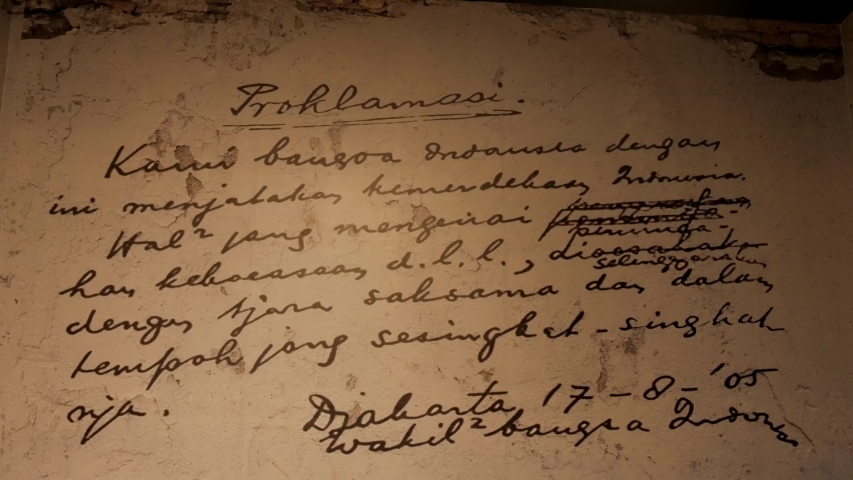 Proklamasi.
Kami bangsa Indonesia dengan
ini menjatakan kemerdekaan Indonesia.
Hal² jang mengenai peminda-
han keboeasaan d.l.l.,
diselenggarakan
dengan tjara saksama dan dalam
tempoh jang sesingkat-singkat
nja.
Djakarta 17-8-'05
Wakil² bangsa Indonesia